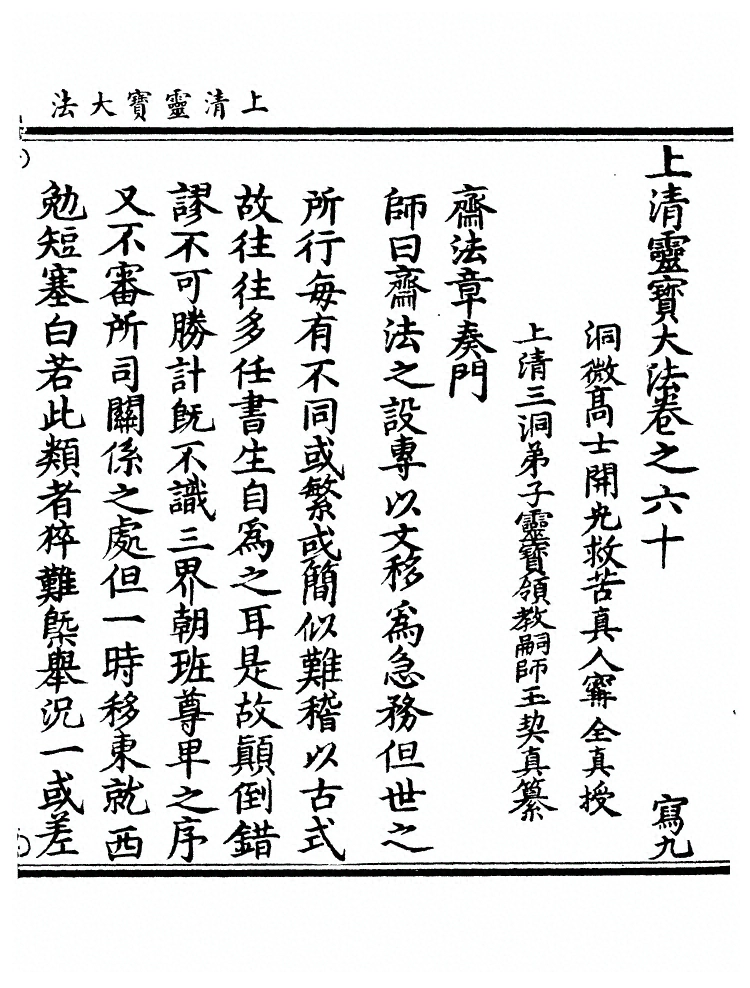 上清靈寶大法
上清靈寶大法卷之六十 寫九
洞微高士開光救苦真人甯全真授
上清三洞弟子靈寶領教嗣師王契真纂
齋法章奏門
師曰齋法之設專以文移爲急務但世之
所行每有不同或繁或簡似難稽以古式
故往往多任書生自爲之耳是故顛倒錯
謬不可勝計旣不識三界朝班尊卑之序
又不審所司關係之處但一時移東就西
勉短塞白若此類者猝難槩舉況一或差